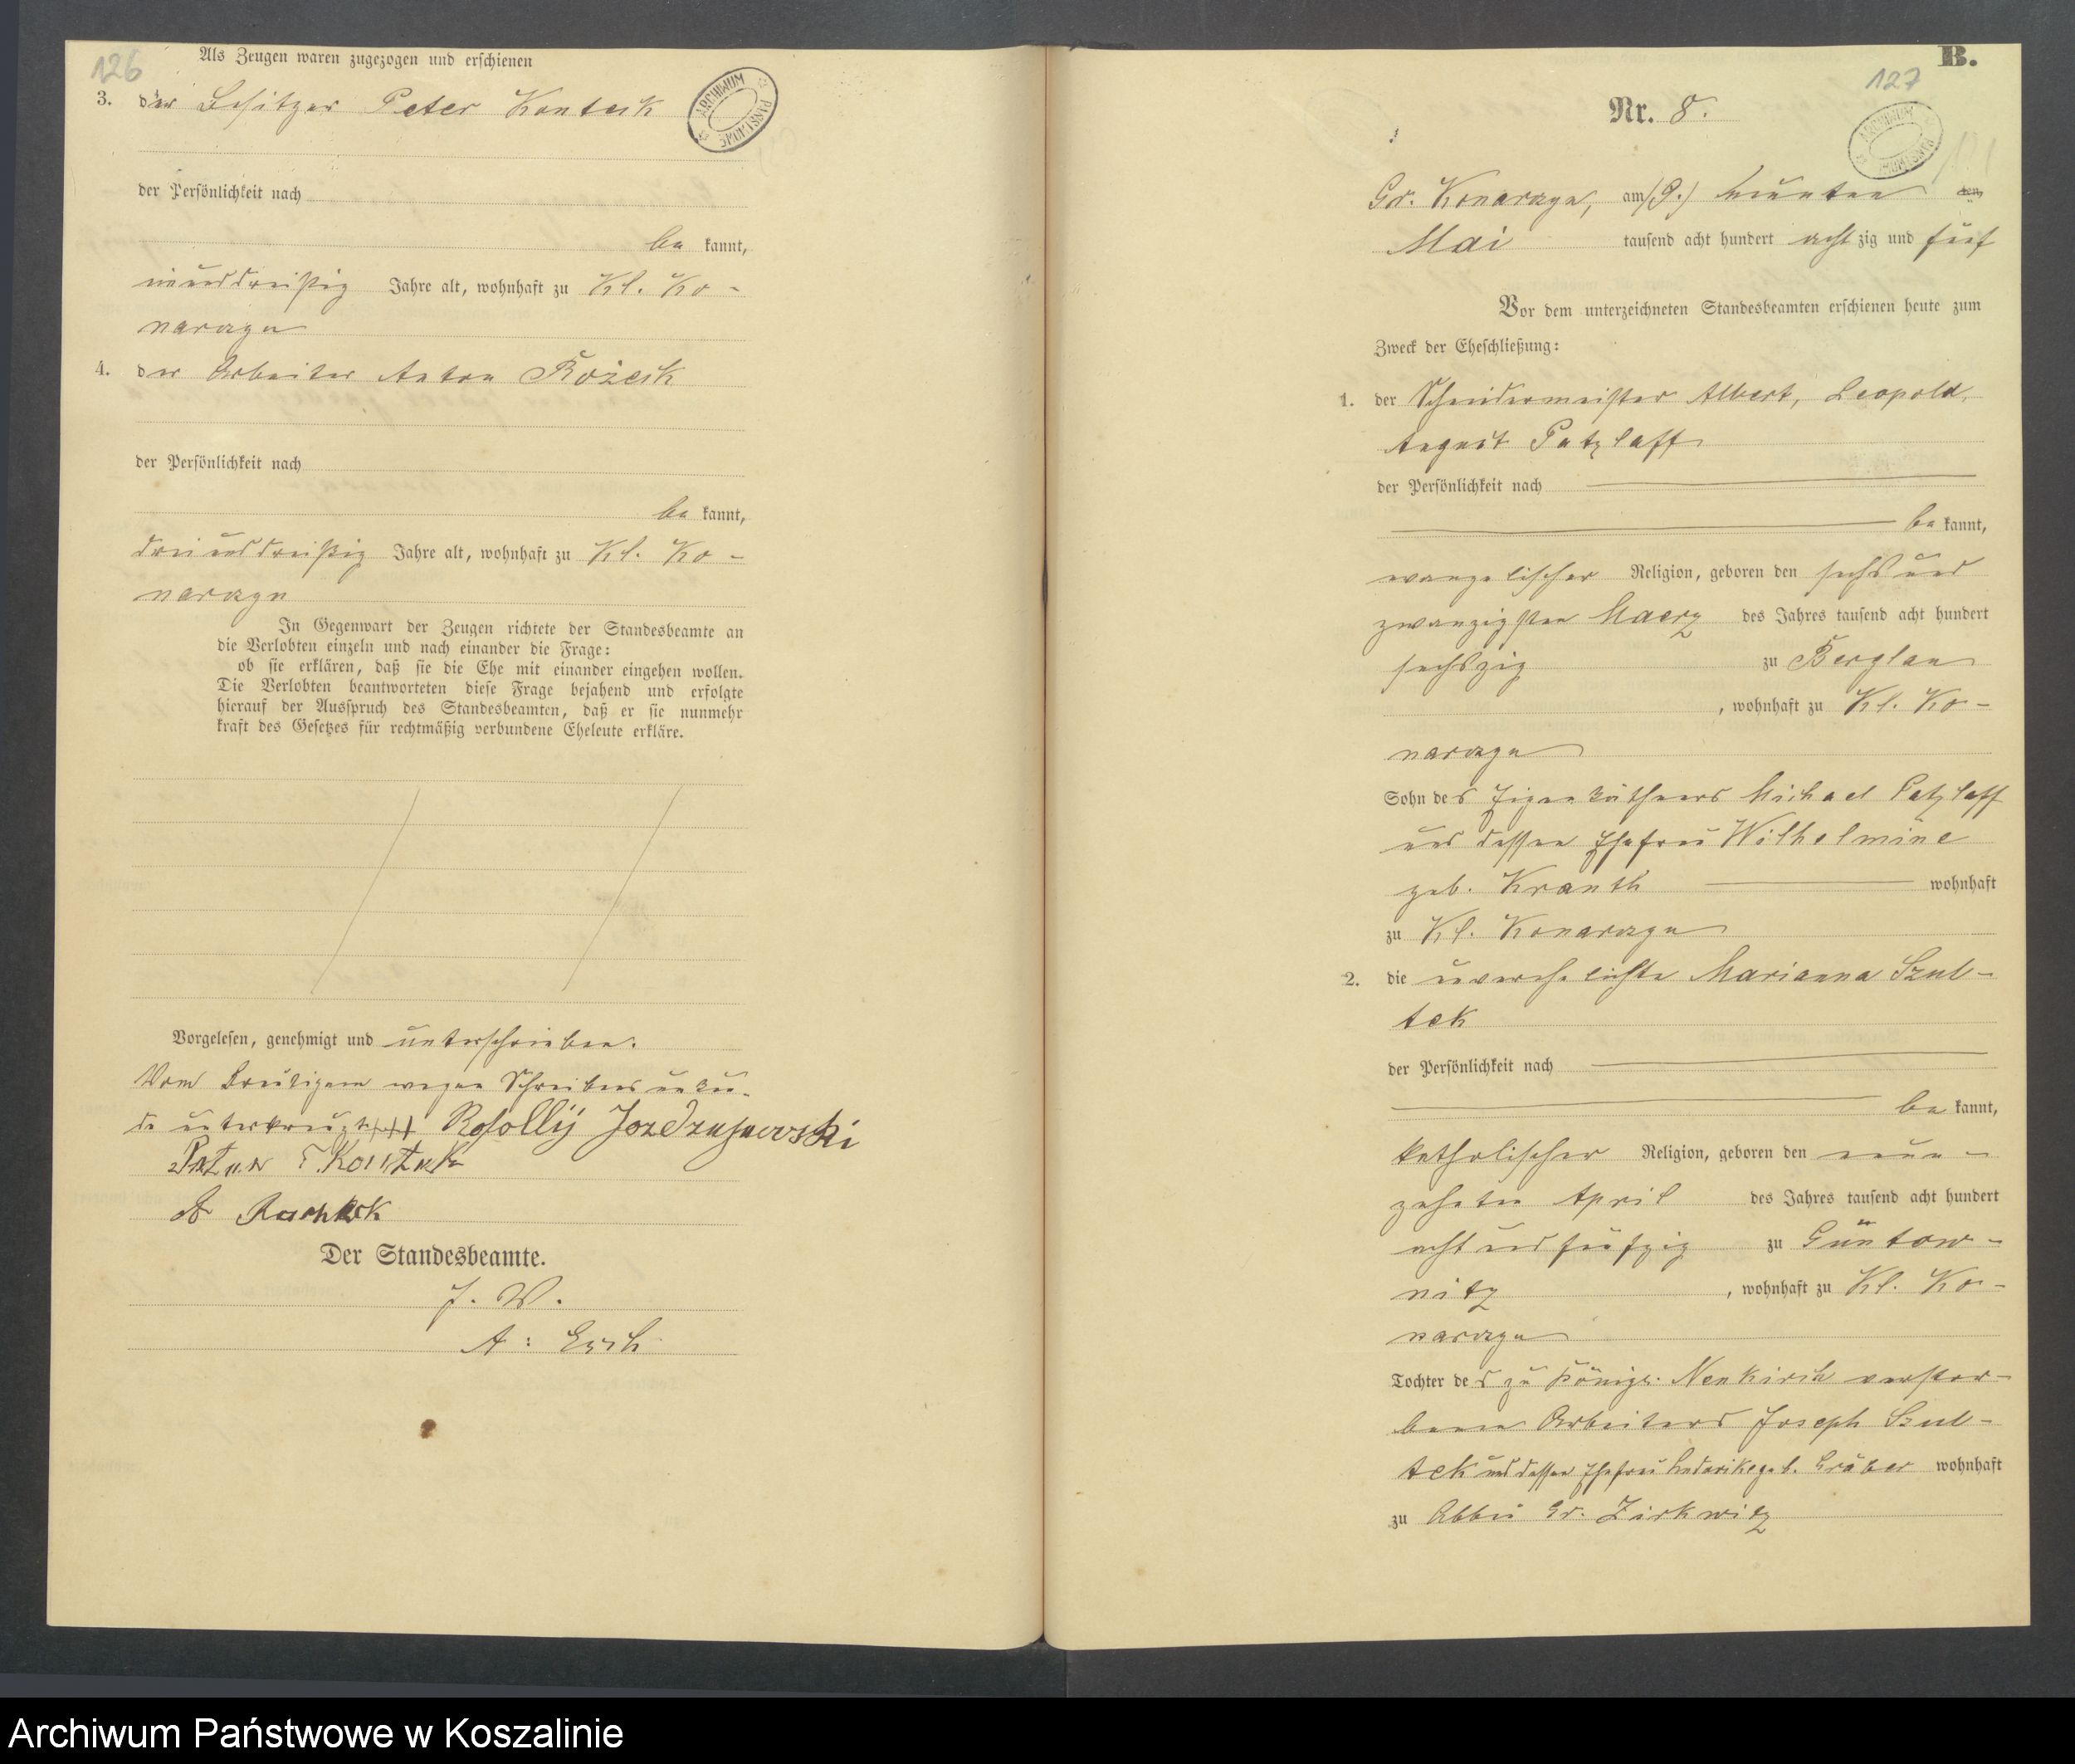 126
Als Zeugen waren zugezogen und erschienen
3. der Besitzer Peter Kontek
ARCHIWUM PAŃSTWOWE
der Persönlichkeit nach
be kannt,
unddreißig Jahre alt, wohnhaft zu Kl. Ko-
narczyn
4. der Arbeiter Anton
der Persönlichkeit nach
be kannt,
dreiunddreißig Jahre alt, wohnhaft zu Kl. Ko-
narczyn
In Gegenwart der Zeugen richtete der Standesbeamte an
die Verlobten einzeln und nach einander die Frage:
ob sie erklären, daß sie die Ehe mit einander eingehen wollen.
Die Verlobten beantworteten diese Frage bejahend und erfolgte
hierauf der Ausspruch des Standesbeamten, daß er sie nunmehr
kraft des Gesetzes für rechtmäßig verbundene Eheleute erkläre.
Vorgelesen, genehmigt und unterschrieben.
Vom Bräutigam wegen Schreibensunkun-
de unterkreuzt +++
Peter Kontek
A
Der Standesbeamte.
J. V.
A:
B.
127
Nr. 8.
ARCHIWUM PAŃSTWOWE
Gr. Konarczyn, am (9.) neunten den
Mai tausend acht hundert achtzig und fünf
Vor dem unterzeichneten Standesbeamten erschienen heute zum
Zweck der Eheschließung:
1. der Schneidermeister Albert, Leopold,
August Patzlaff
der Persönlichkeit nach
be kannt,
evangelischer Religion, geboren den sechsund
zwanzigsten Maerz des Jahres tausend acht hundert
sechszig zu Berglau
, wohnhaft zu Kl. Ko-
narczyn
Sohn des Eigenkäthners Michael Patzlaff
und dessen Ehefrau Wilhelmine
geb. Kranth wohnhaft
zu Kl. Konarczyn
2. die unverehelichte Marianna Szul-
tek
der Persönlichkeit nach
be kannt,
katholischer Religion, geboren den neun-
zehnten April des Jahres tausend acht hundert
acht und fünfzig zu Güntow-
nitz , wohnhaft zu Kl. Ko-
narczyn
Tochter des zu Königl. Neukirch verstor-
benen Arbeiters Joseph Szul-
tek und dessen Ehefrau geb. Gräber wohnhaft
zu Abbau Gr. Zirkwitz
Archiwum Państwowe w Koszalinie